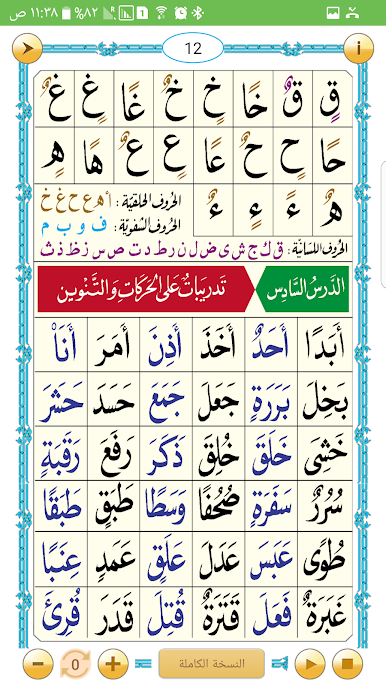 ١١:٣٨ ص ٨٢٪
12
قٍ قٌ خًا خٍ خٌ غًا غٍ غٌ
حًا حٍ حٌ عًا عٍ عٌ هًا هٍ
هٌ ءً ءٍ ءٌ
الحروف الحلقيّة : أ هـ ع ح غ خ
الحروف الشفويّة : ف و ب م
الحروف اللسانيّة: ق ك ج ش ي ض ل ن ر ط د ت ص س ز ظ ذ ث
الدَّرسُ السَّادِس تَدريبَاتٌ عَلى الحَرَكَاتِ وَالتَّنْوين
أَبَدًا أَحَدٌ أَخَذَ أَذِنَ أَمَرَ أَنَاْ
بَخِلَ بَرَرَةٍ جَعَلَ جَمَعَ حَسَدَ حَشَرَ
خَشِيَ خَلَقَ خُلِقَ ذَكَرَ رَفَعَ رَقَبَةٍ
سُرُرٌ سَفَرَةٍ صُحُفًا وَسَطًا طَبَقٍ طَبَقًا
طُوًى عَبَسَ عَدَلَ عَلَقٍ عَمَدٍ عِنَبًا
غَبَرَةٌ فَعَلَ قَتَرَةٌ قُتِلَ قَدَرَ قُرِئَ
0 النسخة الكاملة